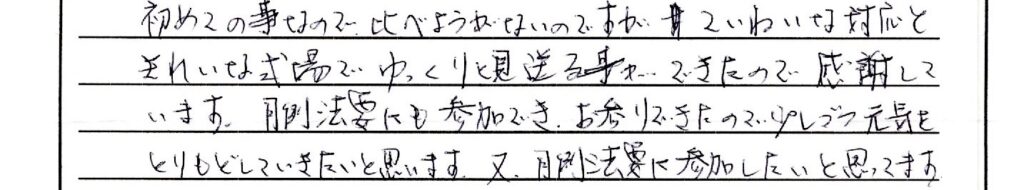 初めての事なので、比べようがないのですが ていねいな対応と
きれいな式場で ゆっくりと見送る事が できたので 感謝して
います。月例法要にも参加でき、お参りできたので少しづつ元気を
とりもどしていきたいと思います。又、月例法要に参加したいと思ってます